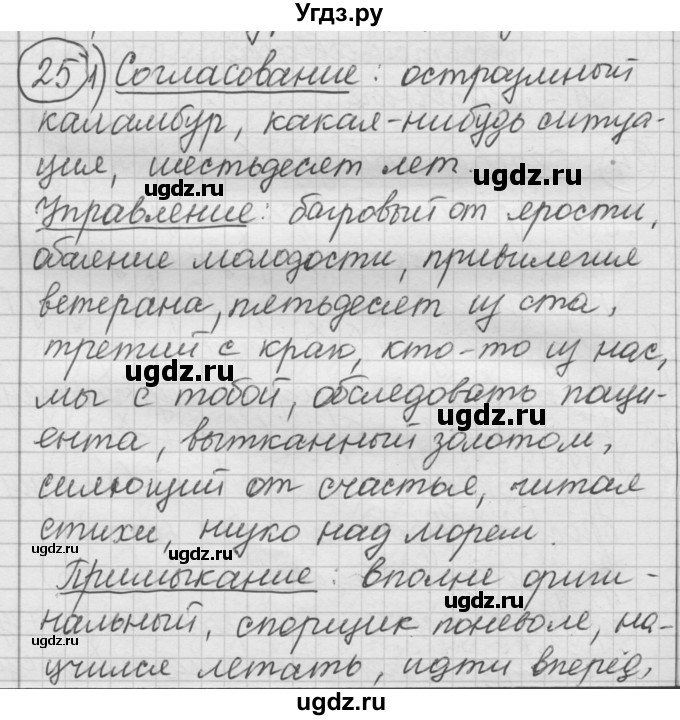 Угдз.ру
25 1) Согласование: остроумный
каламбур, какая-нибудь ситуа-
ция, шестьдесят лет.
ugdz.ru
ugdz.ru
Управление: багровый от ярости,
обаяние молодости, привилегия
ветерана, пятьдесят из ста,
третий с краю, кто-то из нас,
ugdz.ru
мы с тобой, обследовать паци-
ugdz.ru
ента, вытканный золотом,
сияющий от счастья, читая
стихи, низко над морем.
ugdz.ru
ugdz.ru
Примыкание: вполне ориги-
ugdz.ru
нальный, спорщик поневоле, на-
ugdz.ru
учился летать, идти вперёд,
ugdz.ru